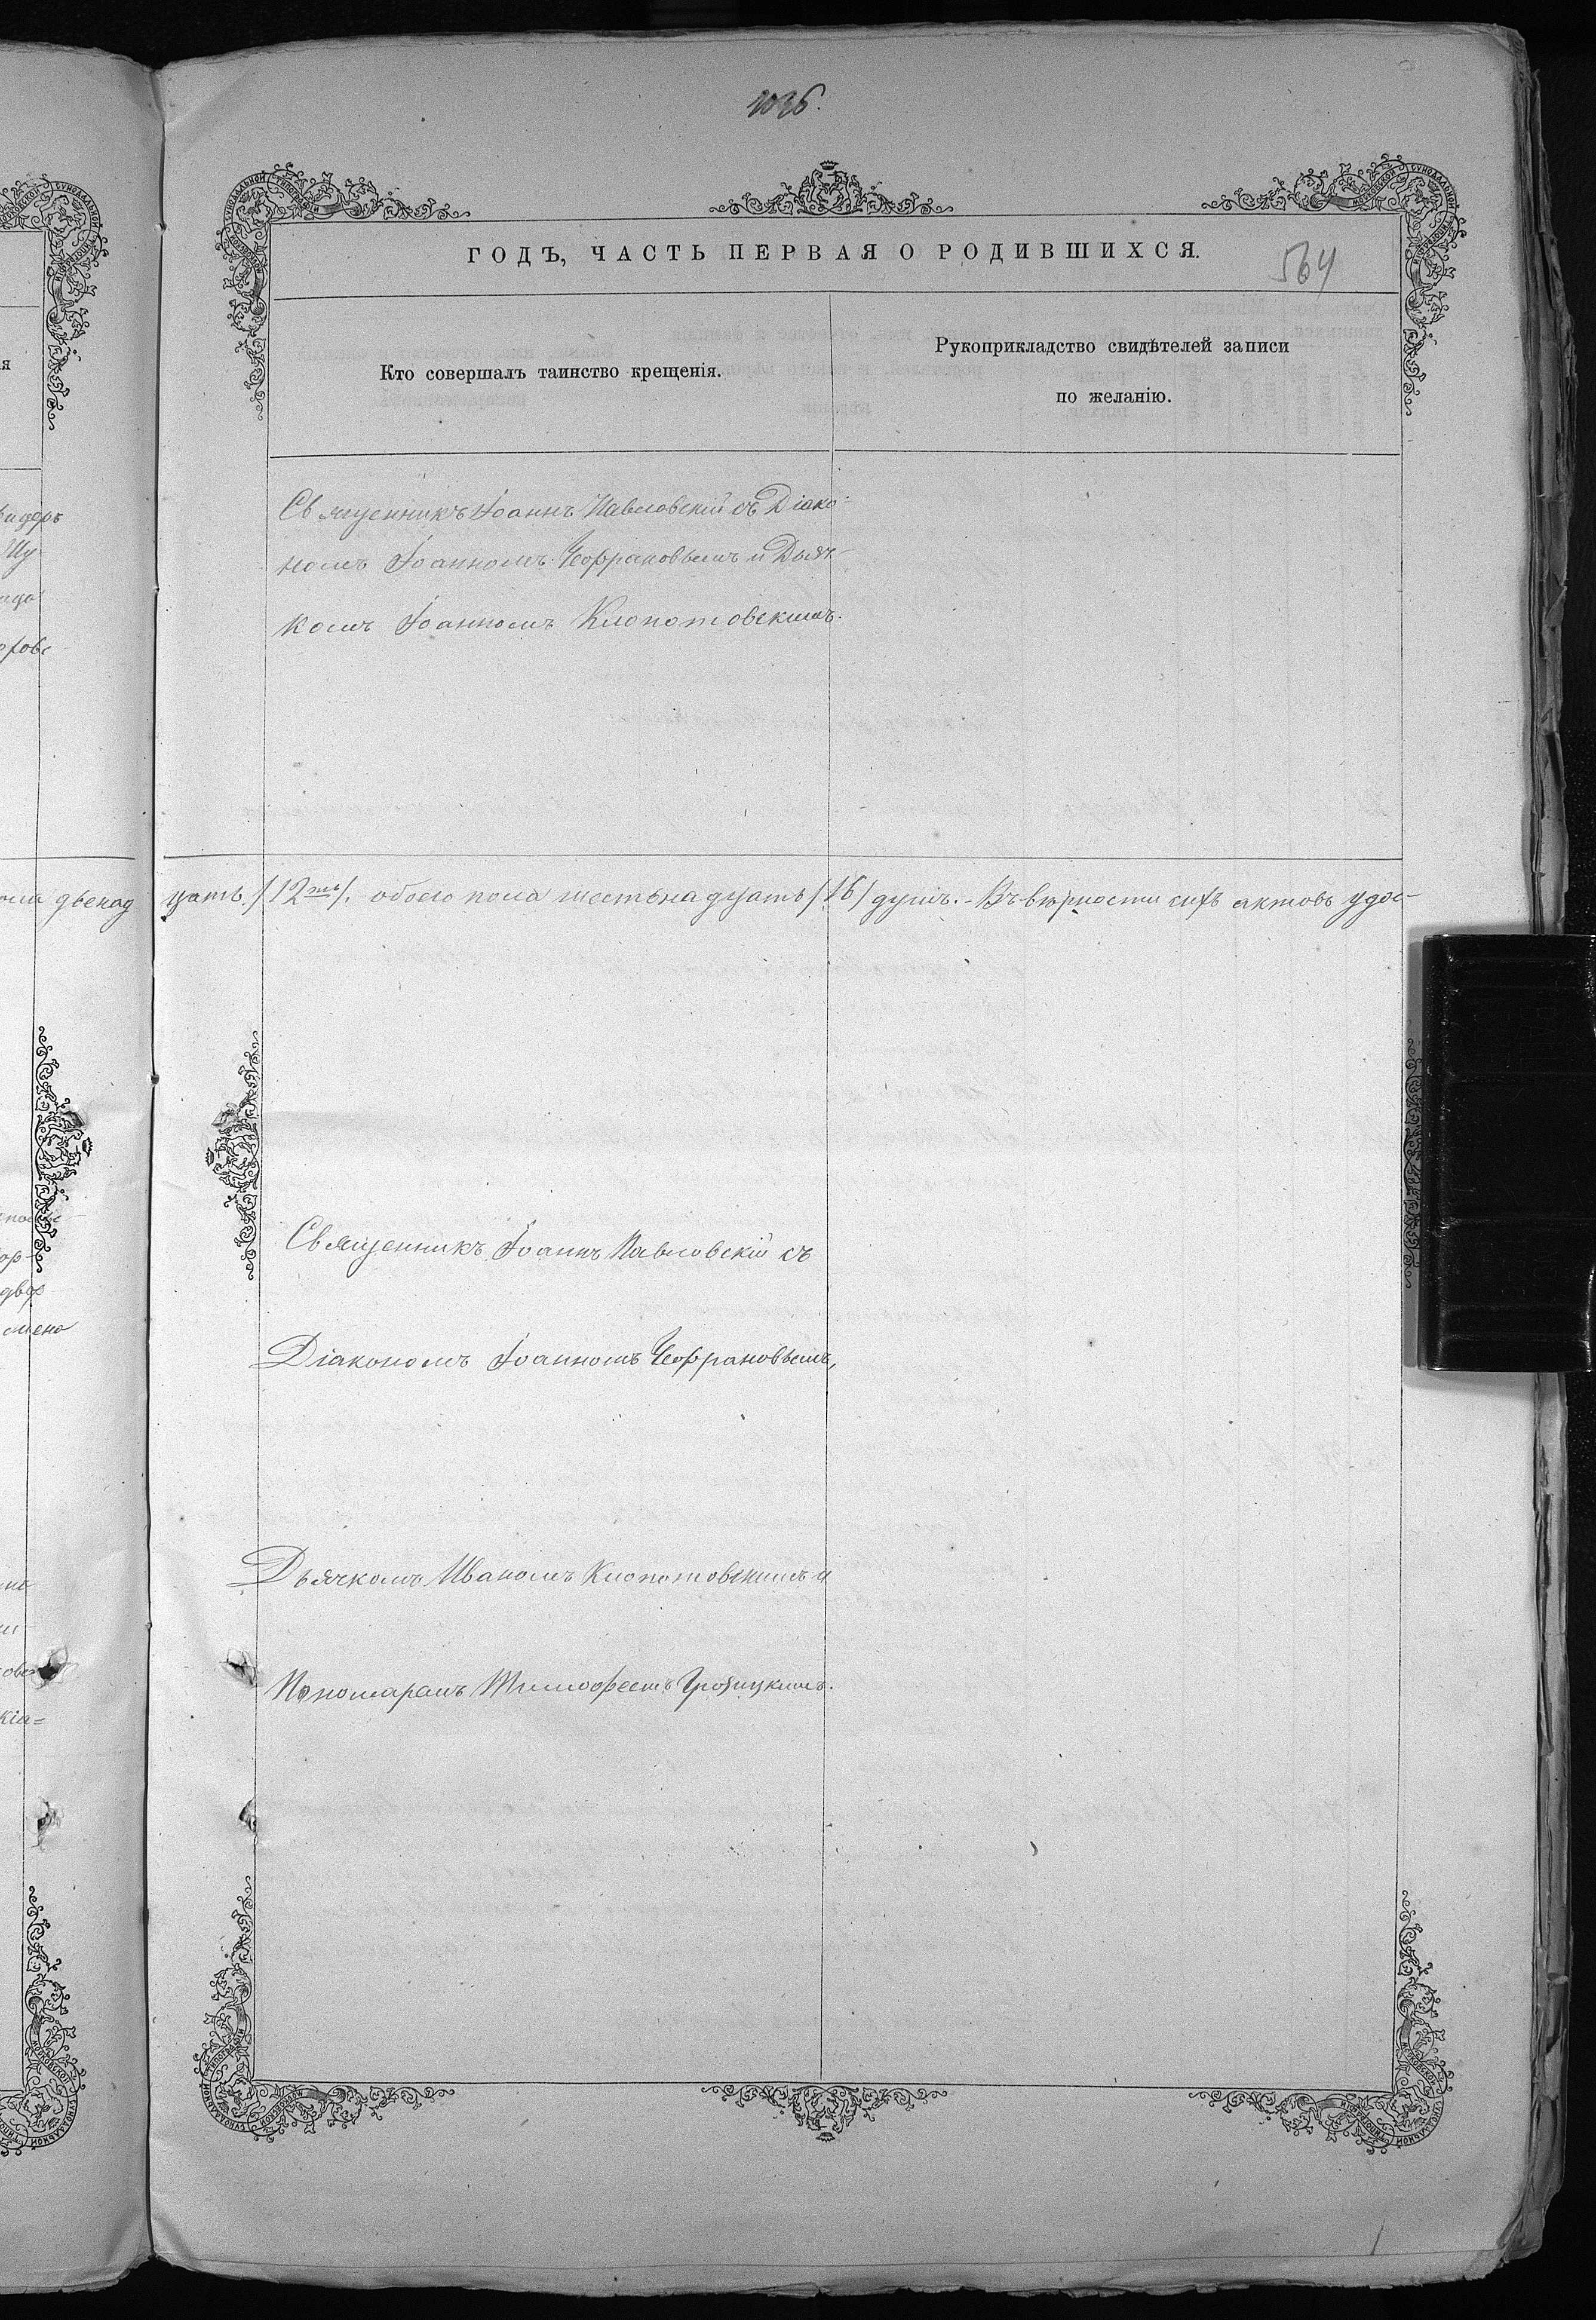 1036.
ГОДЪ, ЧАСТЬ ПЕРВАЯ О РОДИВШИХСЯ.
564
Кто совершалъ таинство крещенія.
Рукоприкладство свидѣтелей записи
по желанію.
Священникъ Іоаннъ Павловскій съ Діако-
номъ Іоанномъ Чефрановымъ и Дьяч-
комъ Іоанномъ Клопотовскимъ.
двенад цать /12ть/. обоего пола шестьнадцать /16/ душъ. - Въ вѣрности сихъ актовъ удос-
Священникъ Іоаннъ Павловскій съ
Діакономъ Іоанномъ Чефрановымъ,
Дьячкомъ Иваномъ Клопотовскимъ и
Пономаремъ Тимофеемъ